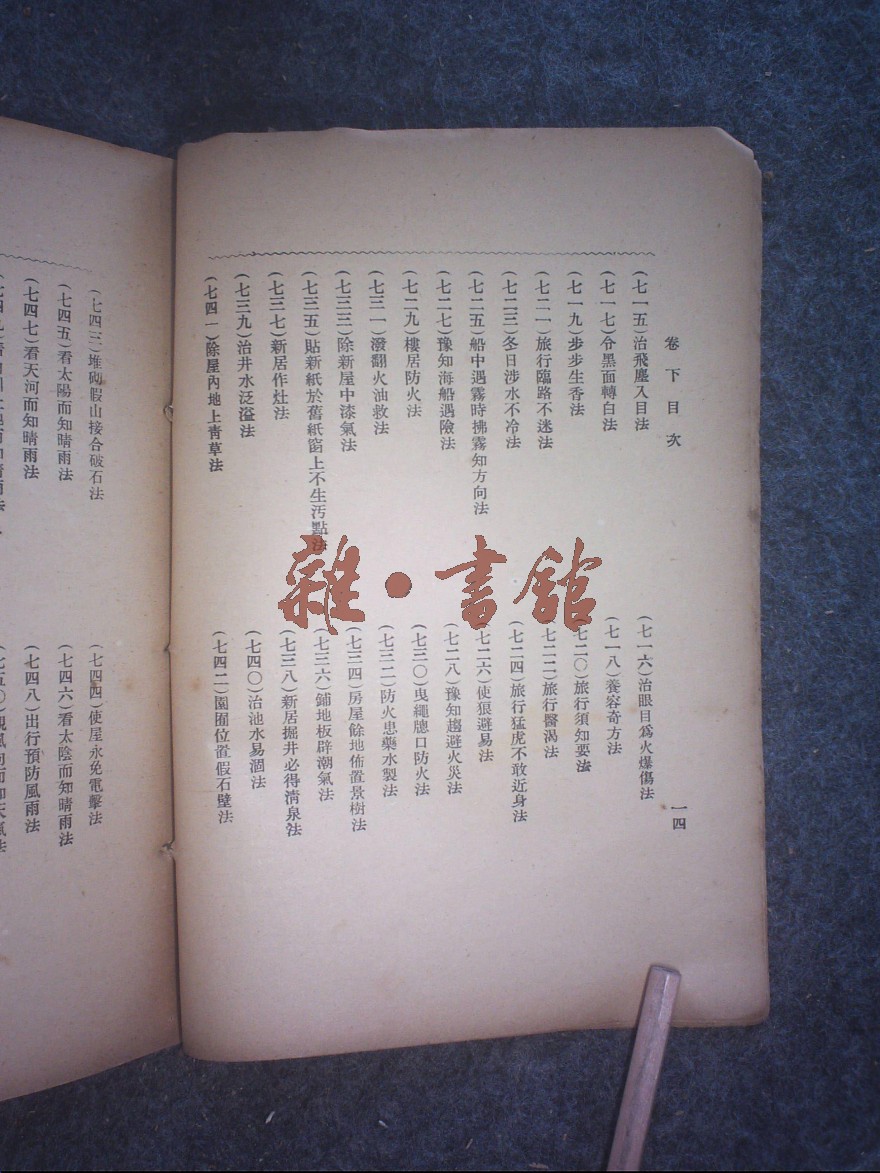 卷下目次
一四
（七一五）治飛塵入目法
（七一六）治眼目爲火爆傷法
（七一七）令黑面轉白法
（七一八）養容奇方法
（七一九）步步生香法
（七二〇）旅行須知要法
（七二一）旅行臨路不迷法
（七二二）旅行醫渴法
（七二三）冬日涉水不冷法
（七二四）旅行猛虎不敢近身法
（七二五）船中遇霧時拂霧知方向法
（七二六）使狠避易法
（七二七）豫知海船遇險法
（七二八）豫知趨避火災法
（七二九）樓居防火法
（七三〇）曳繩牕口防火法
（七三一）潑翻火油救法
（七三二）防火患藥水製法
（七三三）除新屋中漆氣法
（七三四）房屋餘地佈置景樹法
（七三五）貼新紙於舊紙窗上不生汚點法
（七三六）鋪地板辟潮氣法
（七三七）新居作灶法
（七三八）新居掘井必得淸泉法
（七三九）治井水泛溢法
（七四〇）治池水易涸法
（七四一）除屋內地上靑草法
（七四二）園囿位置假石壁法
（七四三）堆砌假山接合破石法
（七四四）使屋永免電擊法
（七四五）看太陽而知晴雨法
（七四六）看太陰而知晴雨法
（七四七）看天河而知晴雨法
（七四八）出行預防風雨法
雜·書館